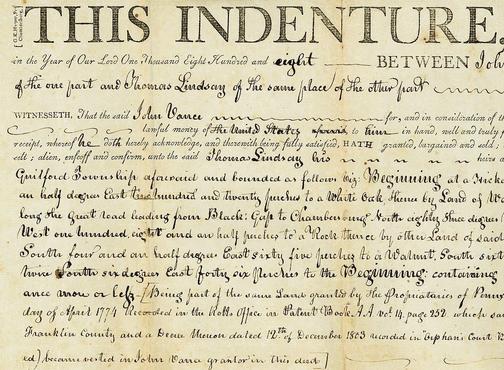 THIS INDENTURE,
in the Year of Our Lord One Thousand Eight Hundred and eight BETWEEN John
of the one part and Thomas Lindsay of the same place of the other part
WITNESSETH, That the said John Vance for, and in consideration of
lawful money of the United States to him in hand, well and truly
receipt, whereof he doth hereby acknowledge, and therewith being fully satisfied, HATH granted, bargained and sold;
sell; alien, enfeoff and confirm, unto the said Thomas Lindsay his heirs
Guilford Township aforesaid and bounded as follows viz. Beginning at a
an half degrees East two hundred and twenty perches to a White Oak thence by Land of
long the great road leading from Black's Gap to Chambersburg North eighty three degrees
West one hundred, eight and an half perches to a Rock thence by other Land of said
South four and an half degrees East sixty five perches to a Walnut, South sixt
South six degrees East forty six Perches to the Beginning: containing
ance more or less. [Being part of the same Land granted by the Proprietaries of Penn
day of April 1774 Recorded in the Rolls Office in Patent Book AA vol. 14, page 252 which sa
Franklin County and a Deed dated 12th of December 1803 recorded in Orphan's Court
ed) became vested in John Vance grantor in this deed]